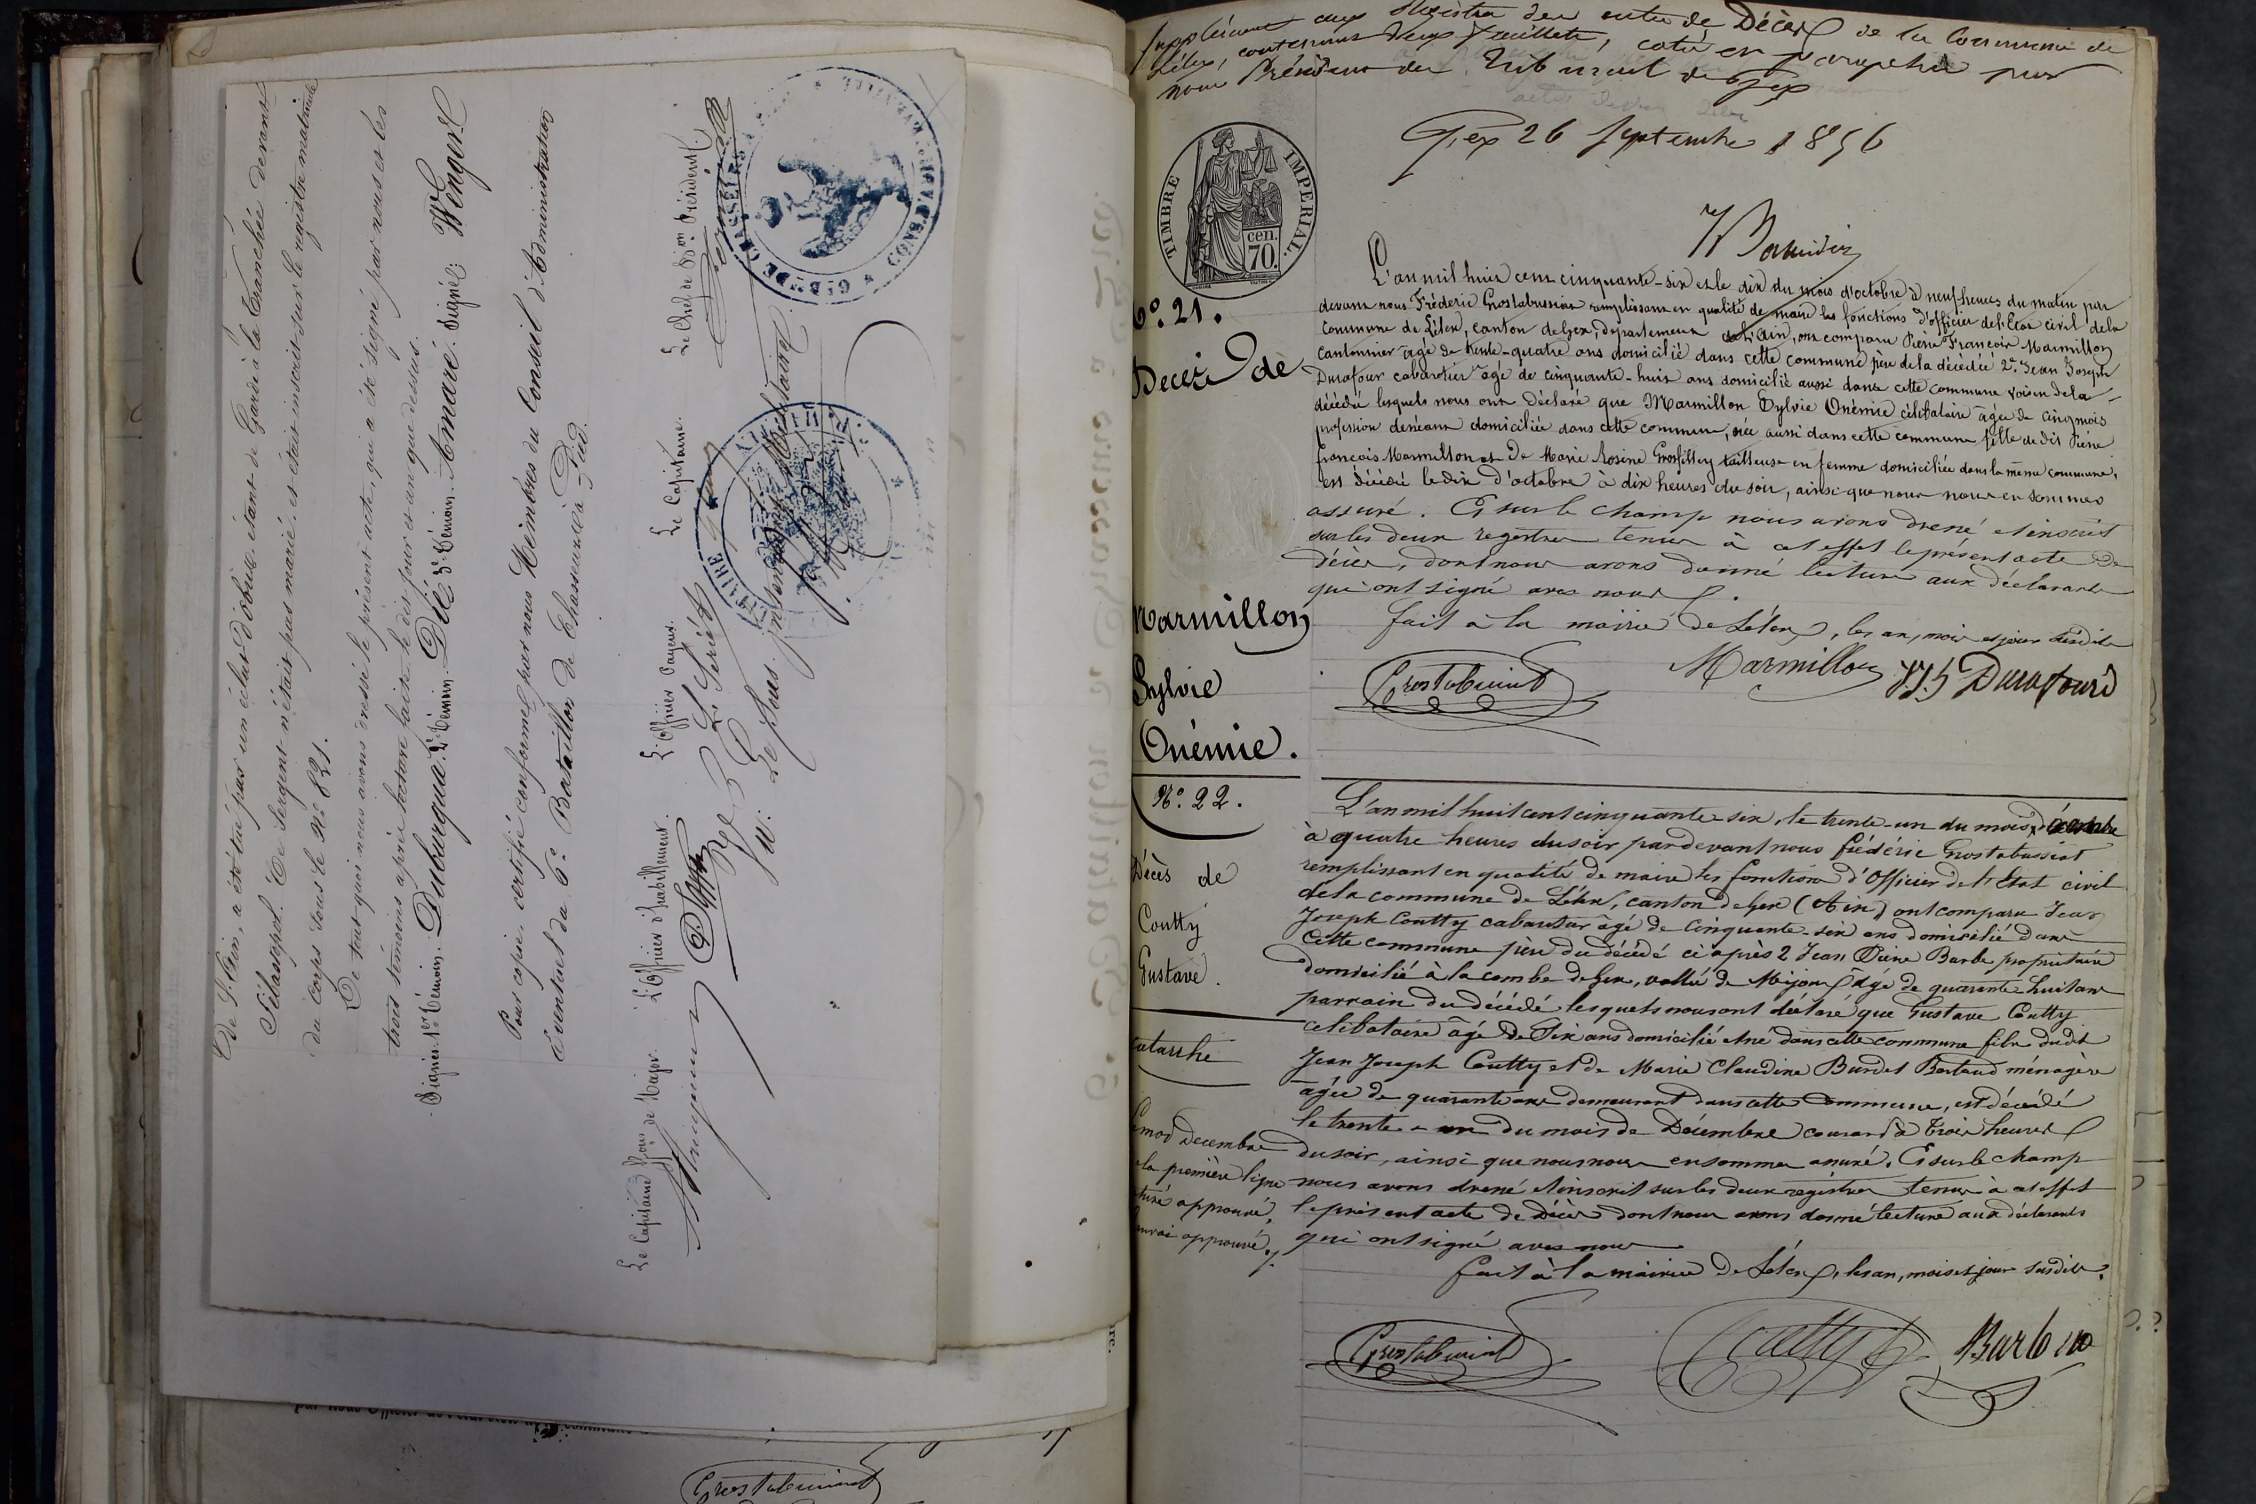 De St. Prix, a été tué par un éclat d'obus étant de Garde à la tranchée devant
Sébastopol. Ce Sergent n'était pas marié et était inscrit sur le registre matricule
du corps sous le No. 821.
De tout quoi nous avons dressé le présent acte, qui a été signé par nous et les
trois témoins après lecture faite le dit jour et an que dessus.
Signés. 1er Témoin. Duburgua. 2e Témoin. Délé 3e Témoin. Amaré. Signé: Wengert
Pour copie, certifié conforme par nous Membres du Conseil d'Administration
éventuel du 6e Bataillon de Chasseurs à Pied.
Le Capitaine Fons de Major. L'Officier d'habillement. L'Officier Payeur. Le Capitaine. Le Chef de Bon Président.
Vu: Le Sous Intendant Militaire.
Supplément aux Registre des actes de Décès de la Commune de
Lélex, contenant deux feuillets, coté et paraphé par
nous Président du Tribunal de Gex
Gex 26 Septembre 1856
TIMBRE IMPERIAL.
cen.
70.
No. 21.
Décès de
Marmillon
Sylvie
Onémie.
L'an mil huit cent cinquante-six et le dix du mois d'octobre à neuf heures du matin par
devant nous Fréderic Grostabussiat remplissant en qualité de maire les fonctions d'officier de l'Etat civil de la
Commune de Lélex, canton de Gex, département de l'Ain, ont comparu Pierre François Marmillon
Cantonnier âgé de trente-quatre ans domicilié dans cette commune père de la décédée 2° Jean Joseph
Durafour cabaretier âgé de cinquante-huit ans domicilié aussi dans cette commune voisin de la
décédée lesquels nous ont déclaré que Marmillon Sylvie Onémie célibataire âgée de cinq mois
profession de néant domiciliée dans cette commune, née aussi dans cette commune fille de dit Pierre
françois Marmillon et de Marie Rosine Grosfilley tailleuse en femme domiciliée dans la même commune,
est décédé le dix d'octobre à dix heures du soir, ainsi que nous nous en sommes
assuré. Et sur le champ nous avons dressé et inscrit
sur les deux registres tenus à cet effet le présent acte de
décès, dont nous avons donné lecture aux déclarants
qui ont signé avec nous.
fait à la mairie de Lélex, les an, mois et jour susdits
Grostabussiat Marmillon JJh Durafour
No. 22.
Décès de
Coutty
Gustave.
catarrhe
L'an mil huit cent cinquante-six, le trente-un du mois décembre
à quatre heures du soir pardevant nous fréderic Grostabussiat
remplissant en qualité de maire les fonctions d'Officier de l'Etat civil
de la commune de Lélex, canton de Gex (Ain) ont comparu Jean
Joseph Coutty cabaretier âgé de cinquante-six ans domicilié dans
cette commune père du décédé ci après 2 Jean Pierre Barbe propriétaire
domicilié à la combe de Gex, vallée de Mijoux âgé de quarante huit ans
parrain du décédé lesquels nous ont déclaré que Gustave Coutty
célibataire âgé de Six ans domicilié et né dans cette commune fils dudit
Jean Joseph Coutty et de Marie Claudine Burdet Bertaud ménagère
âgée de quarante ans demeurant dans cette commune, est décédé
le trente-un du mois de Décembre courant à trois heures
du soir, ainsi que nous nous en sommes assuré. Et sur le champ
nous avons dressé et inscrit sur les deux registres tenus à cet effet
le présent acte de Décès dont nous avons donné lecture aux déclarants
qui ont signé avec nous
mot Decembre
la première ligne
approuvé,
approuvé
fait à la mairie de Lélex, les an, mois et jour susdits.
Grostabussiat Coutty Barbe